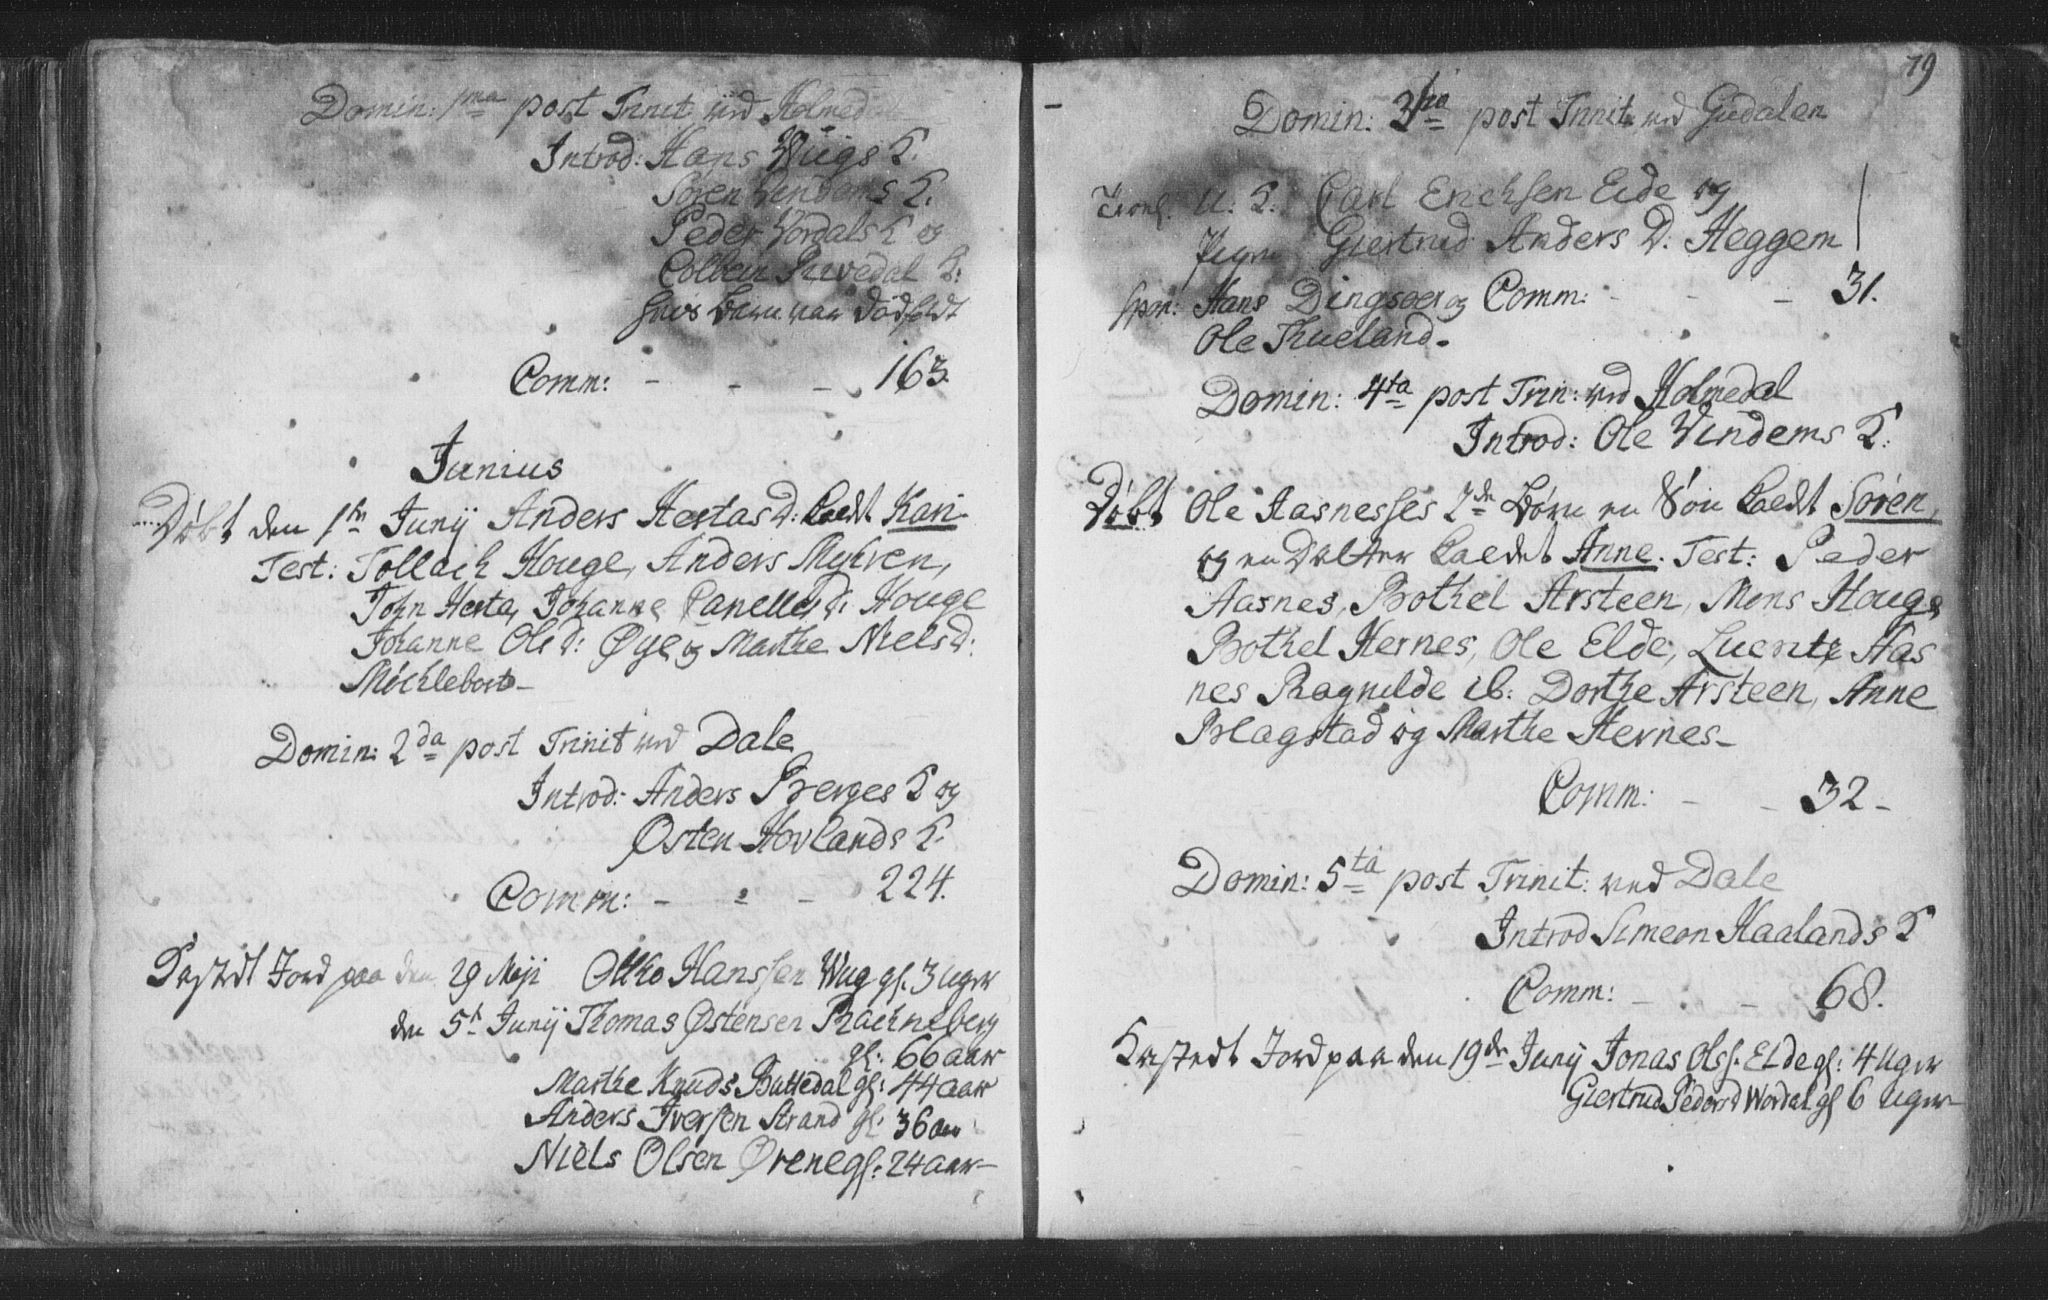 Domin: 1ma post Trinit ved Holmed
Introd: Hans Wugs K.
Sören Vindems K.
Peder Wordals K og
Colbein Rivedal K:
hvis Barn var dödfödt
Comm: - - - 163.
Junius
Döbt den 1te Junij Anders Hestas D: kaldt Kari.
Test: Tollach Houge, Anders Myhren,
John Hesta, Johanne Canelles d: Houge
Johanne Ols d: Øye og Marthe Niels d:
Möchlebost-
Domin: 2da post Trinit ved Dale
Introd: Anders Berges K og
Østen Hovlands K.
Comm: - - - 224.
Kastedt Jord paa den 29 Maji Otho Hanssen Wug gl. 3 Uger
den 5t Junij Thomas Østensen Rachneberg
gl: 66 aar
Marthe Knuds Buttedal gl: 44 aar
Anders Iversen Strand gl: 36 aar
Niels Olsen Ørene gl: 24 aar-
79
Domin: 3tia post Trinit ved Gudalen
Trol. U. K. Carl Erichsen Eide og
Pigen Giertrud Anders D: Heggem
Spon: Hans Dingsoer og Comm: - - - 31.
Ole Thueland.
Domin: 4ta post Trin: ved Holmedal
Introd: Ole Vindems K:
Döbt Ole Aasnesses 2de Börn en Sön kaldt Sören,
og en Datter kaldet Anne. Test: Peder
Aasnes, Bothel Arsteen, Mons Houge
Bothel Hernes, Ole Elde, Aas
nes Ragnilde ib: Dorthe Arsteen, Anne
Blagstad og Marthe Hernes-
Comm: - - 32-
Domin: 5ta post Trinit: ved Dale
Introd Simeon Haalands K
Comm: - - 68.
Kastedt Jord paa den 19de Junij Jonas Ols: Elde gl: 4 Uger
Giertrud Peders d Wordal gl 6 Uger-